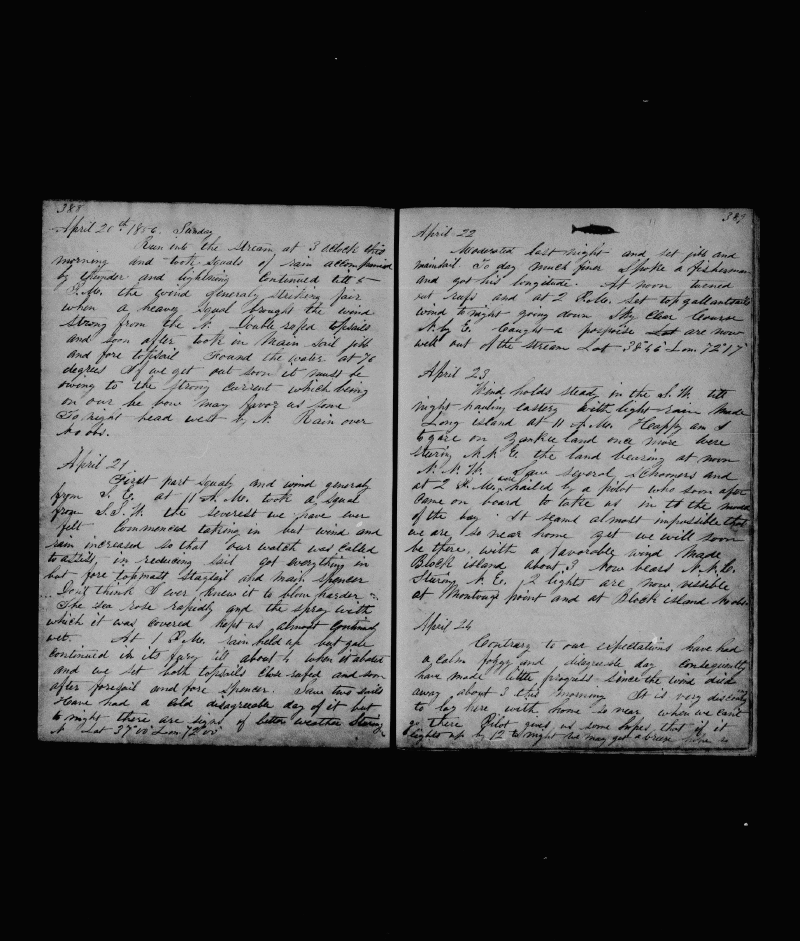 388
April 20th 1856. Sunday
Run into the stream at 3 oclock this
morning and took squals of rain accompanied
by thunder and lightning Continued till 5
P.M. the wind generaly striking fair
when a heavy squal brought the wind
strong from the N. Double reefed topsails
and soon after took in Main sail jib
and fore topsail Found the water at 76
degrees If we get out soon it must be
owing to the strong current which being
on our lee bow may favor us some
To night head west by N. Rain over
No obs.
April 21
First part squaly and wind generaly
from S. E. at 11 A.M. took a squal
from S.S.W. the severest we have ever
felt commenced taking in but wind and
rain increased so that our watch was called
to assist, in reducing sail got everything in
but fore topmast Staysail and main spencer
Dont think I ever knew it to blow harder
The sea rose rapidly and the spray with
which it was covered kept us almost continual
wet. At 1 P.M. rain held up but gale
continued in its fury till about 4 when it abated
and we set both topsails close reefed and soon
after foresail and fore spencer. Saw two sails
Have had a cold disagreeable day of it but
to night there are signs of better weather Steering
N Lat 37°00 Lon 72°00
389
April 22
Moderated last night and set jib and
mainsail To day much finer Spoke a fisherman
and got his longitude. At noon turned
out reefs and at 2 P.M. set topgallantsails
wind to night going down Sky clear Course
N. by E. Caught a porpoise Lat are now
well out of the stream Lat 38°46 Lon 72°17
April 23
Wind holds steady in the S.W. till
night hauling eastery with light rain Made
Long island at 11 A.M. Happy am I
to gaze on Yankee land once more were
stering N.N.E. the land bearing at noon
N.N.W. Saw several Schooners and
at 2 P.M. was hailed by a pilot who soon after
came on board to take us in to the mouth
of the bay. It seems almost impossible that
we are so near home yet we will soon
be there, with a favorable wind Made
Block island about 3 Now bears N.N.E.
Stering N.E. 2 lights are now visible
at Montaug point and at Block island No obs.
April 24
Contrary to our expectations have had
a calm foggy and disagreeable day consequently
have made little progress since the wind died
away about 3 this morning It is very
to lay here with home so near when we cant
go there Pilot gives us some hopes that if it
lights up by 12 to night we may get a breeze